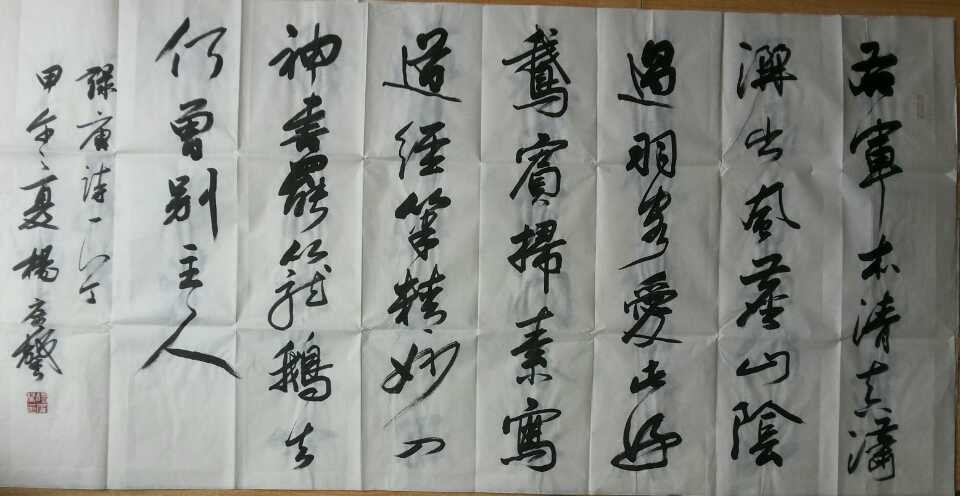 右軍本清真瀟
灑出風塵山陰
過羽客愛此好
鵝賓掃素寫
道經筆精妙入
神書罷籠鵝去
何曾別主人
錄唐詩一首
甲午之夏楊